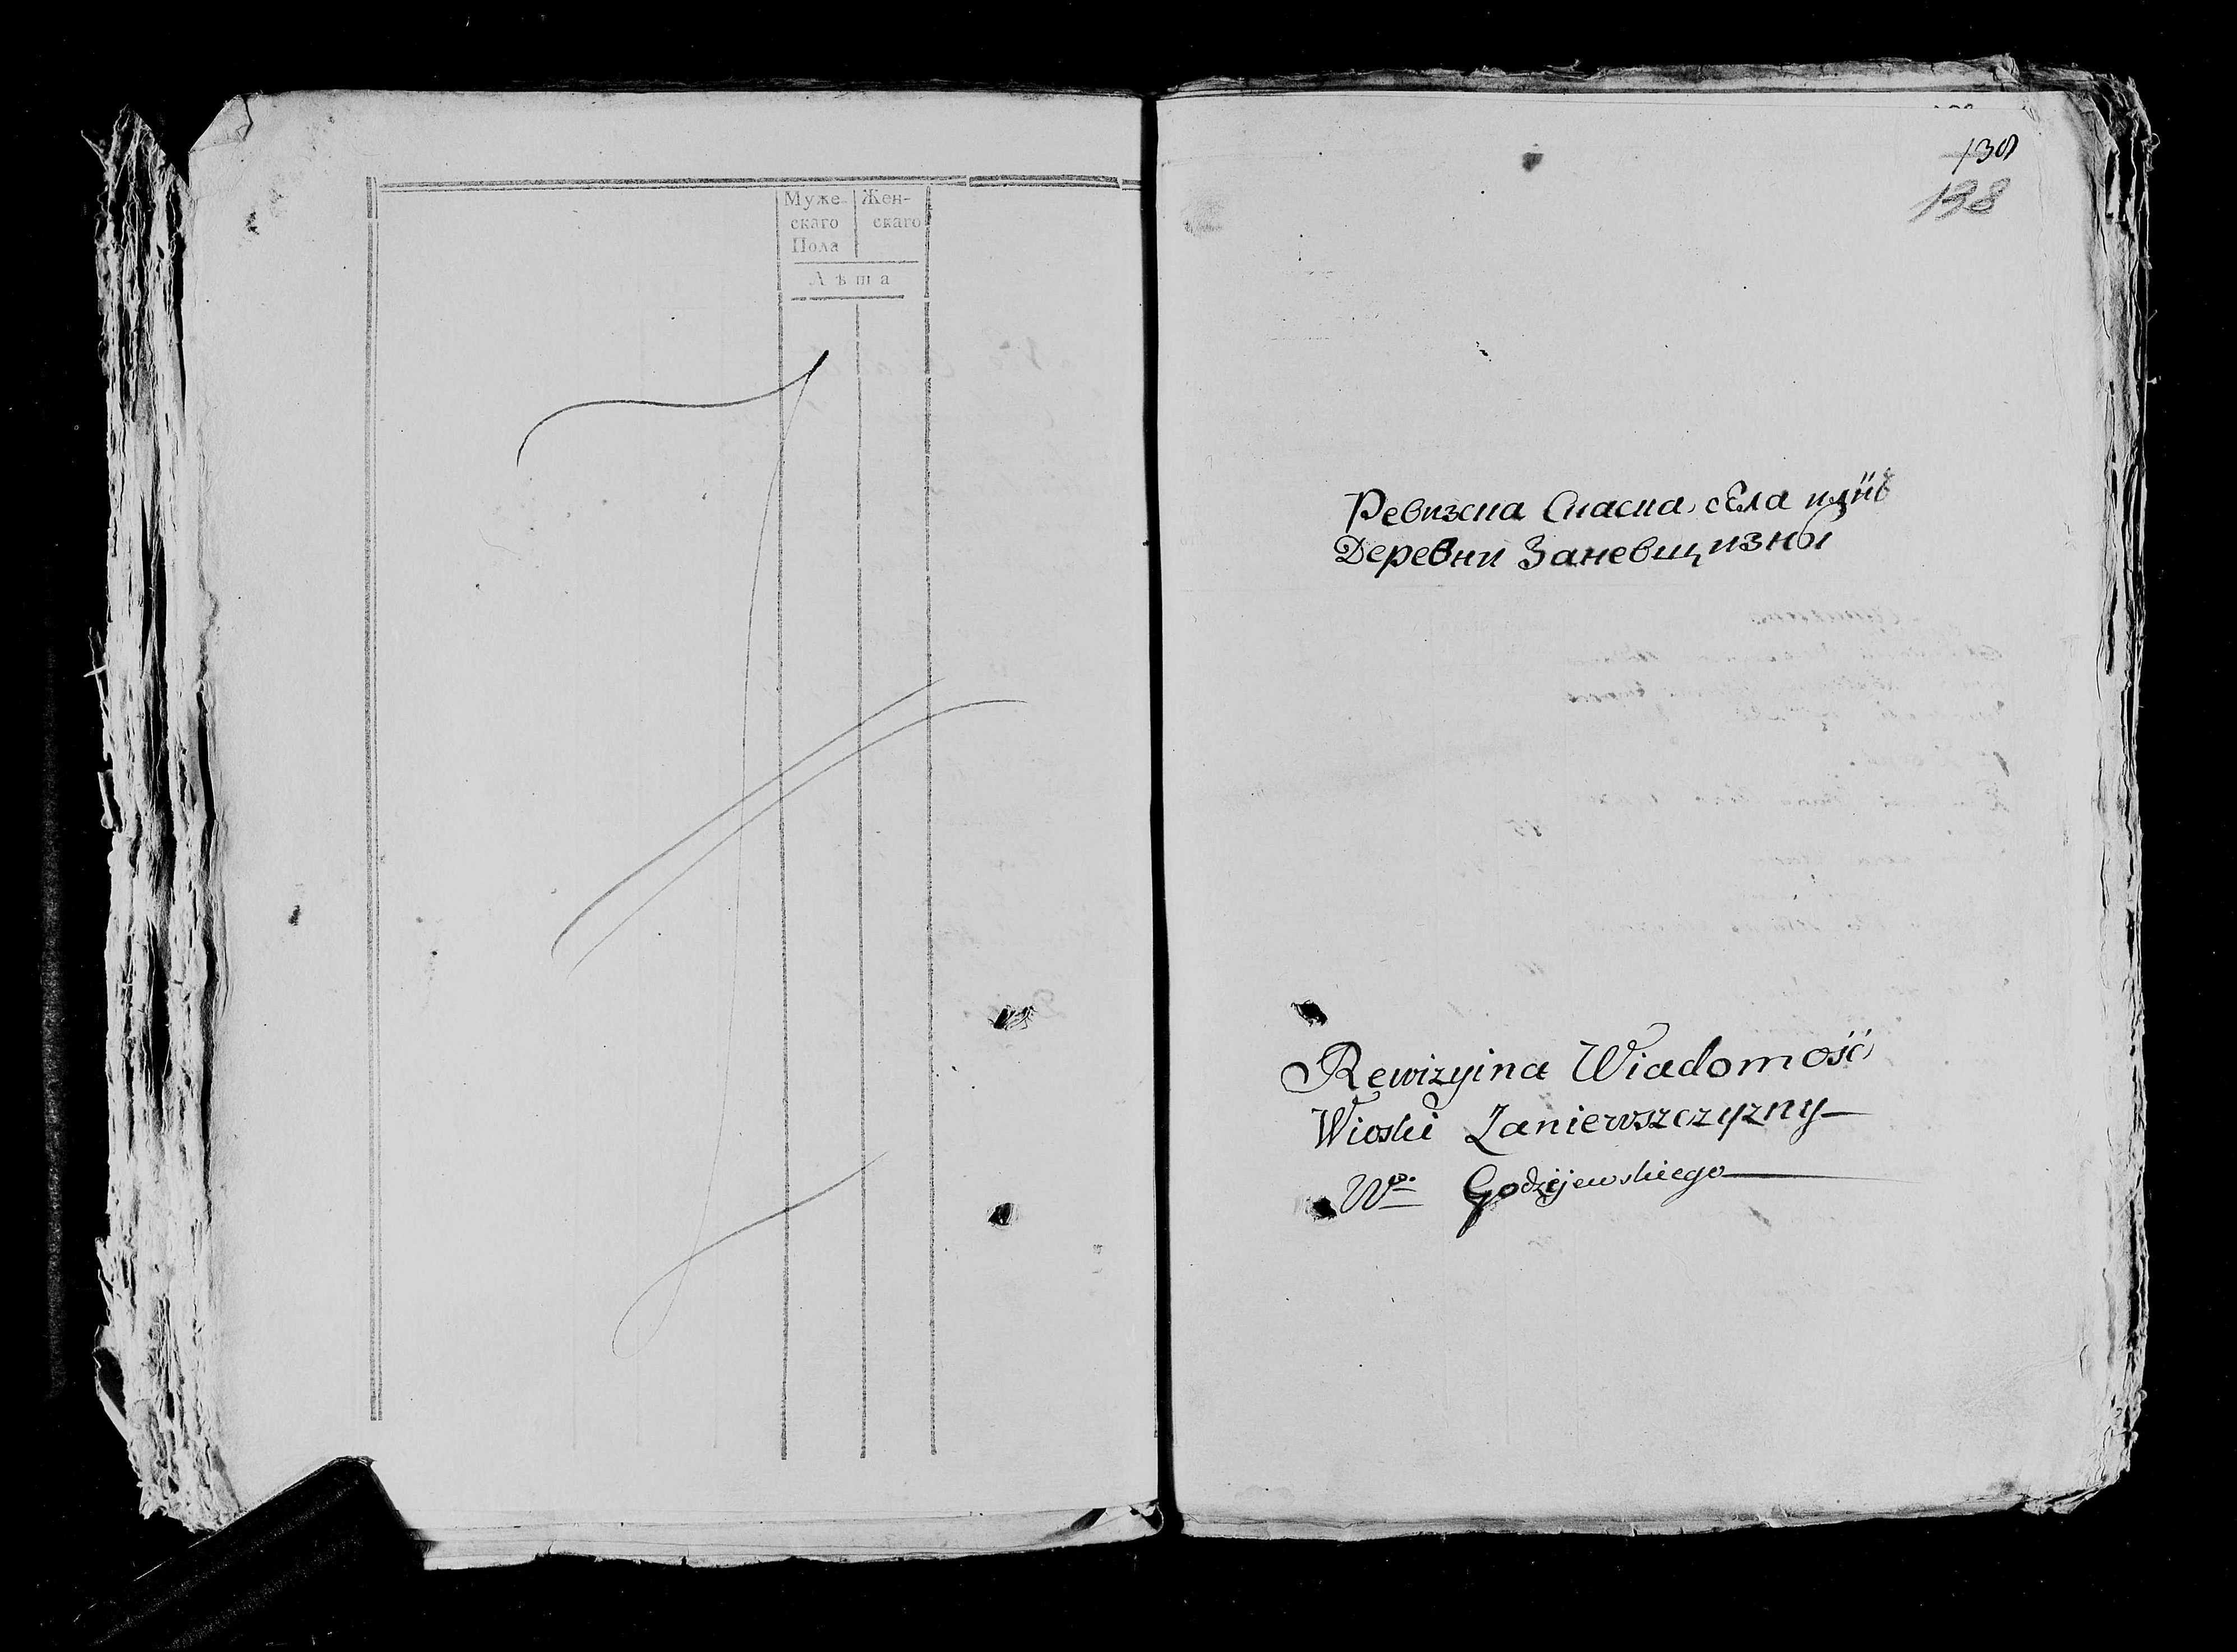 Муже- Жен-
скаго скаго
Пола
Лѣта
138
138
Ревизска Сказка села или
Деревни Заневщизны
Rewizyina Wiadomość
Wioski Zaniewszczyzny
Wo. Godziejewskiego